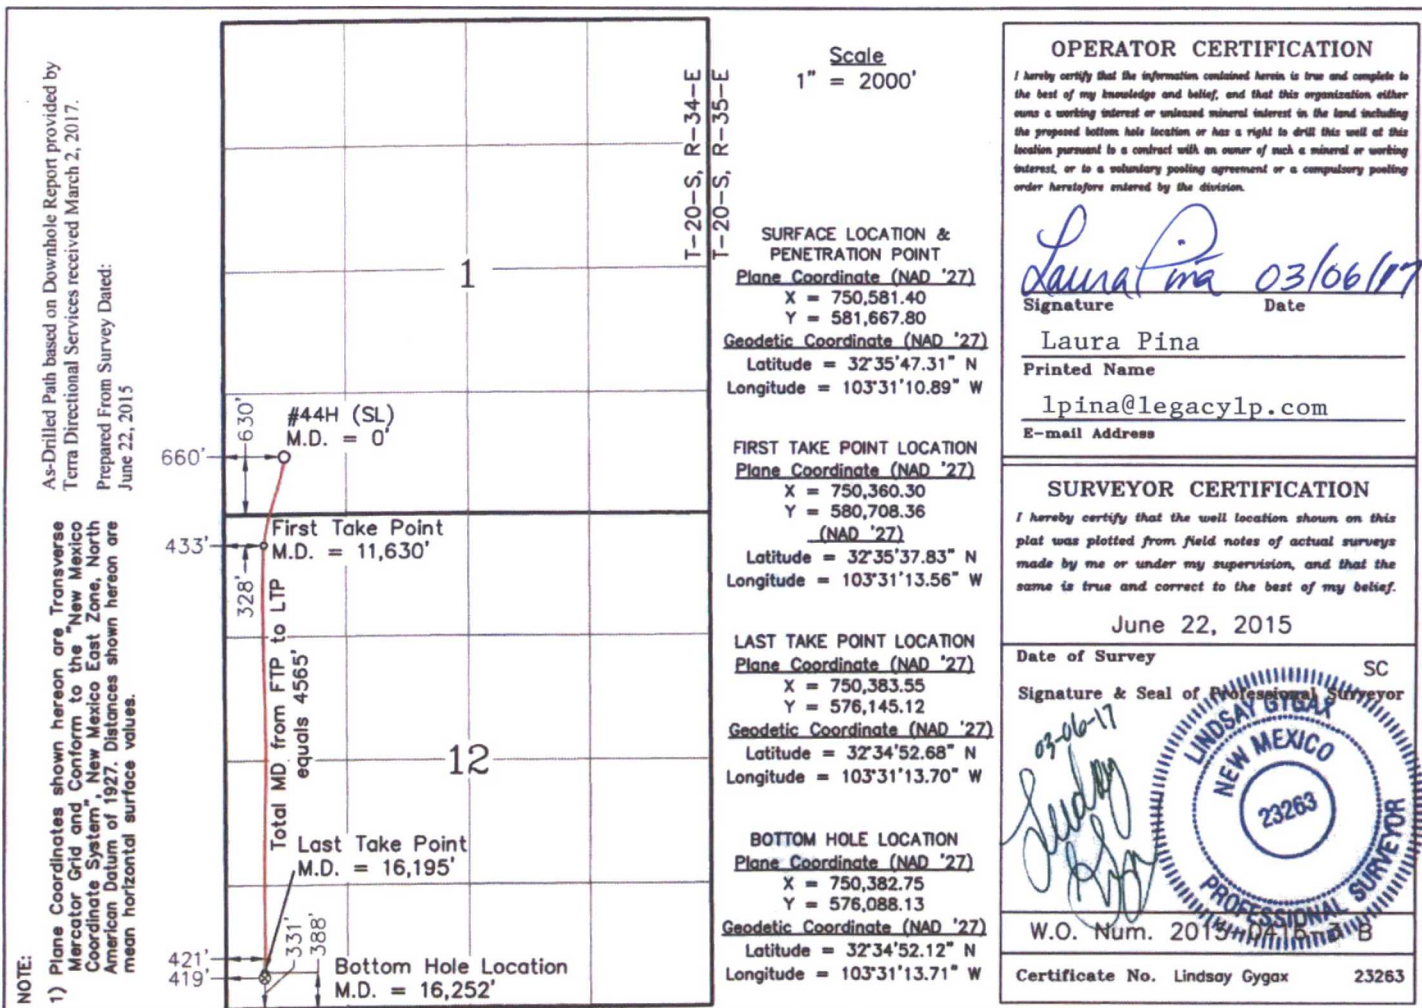 NOTE:
1) Plane Coordinates shown hereon are Transverse
Mercator Grid and Conform to the "New Mexico
Coordinate System", New Mexico East Zone, North
American Datum of 1927. Distances shown hereon are
mean horizontal surface values.
As-Drilled Path based on Downhole Report provided by
Terra Directional Services received March 2, 2017.
Prepared From Survey Dated:
June 22, 2015
1
T-20-S, R-34-E
T-20-S, R-35-E
#44H (SL)
M.D. = 0'
630'
660'
First Take Point
M.D. = 11,630'
433'
328'
Total MD from FTP to LTP
equals 4565'
12
Last Take Point
M.D. = 16,195'
421'
419'
331'
388'
Bottom Hole Location
M.D. = 16,252'
Scale
1" = 2000'
SURFACE LOCATION &
PENETRATION POINT
Plane Coordinate (NAD '27)
X = 750,581.40
Y = 581,667.80
Geodetic Coordinate (NAD '27)
Latitude = 32°35'47.31" N
Longitude = 103°31'10.89" W
FIRST TAKE POINT LOCATION
Plane Coordinate (NAD '27)
X = 750,360.30
Y = 580,708.36
(NAD '27)
Latitude = 32°35'37.83" N
Longitude = 103°31'13.56" W
LAST TAKE POINT LOCATION
Plane Coordinate (NAD '27)
X = 750,383.55
Y = 576,145.12
Geodetic Coordinate (NAD '27)
Latitude = 32°34'52.68" N
Longitude = 103°31'13.70" W
BOTTOM HOLE LOCATION
Plane Coordinate (NAD '27)
X = 750,382.75
Y = 576,088.13
Geodetic Coordinate (NAD '27)
Latitude = 32°34'52.12" N
Longitude = 103°31'13.71" W
OPERATOR CERTIFICATION
I hereby certify that the information contained herein is true and complete to
the best of my knowledge and belief, and that this organization either
owns a working interest or unleased mineral interest in the land including
the proposed bottom hole location or has a right to drill this well at this
location pursuant to a contract with an owner of such a mineral or working
interest, or to a voluntary pooling agreement or a compulsory pooling
order heretofore entered by the division.
Laura Pina 03/06/17
Signature Date
Laura Pina
Printed Name
lpina@legacylp.com
E-mail Address
SURVEYOR CERTIFICATION
I hereby certify that the well location shown on this
plat was plotted from field notes of actual surveys
made by me or under my supervision, and that the
same is true and correct to the best of my belief.
June 22, 2015
Date of Survey
SC
Signature & Seal of Professional Surveyor
03-06-17
Lindsay Gygax
LINDSAY GYGAX
NEW MEXICO
23263
PROFESSIONAL SURVEYOR
W.O. Num. 2015-0415-3 B
Certificate No. Lindsay Gygax 23263